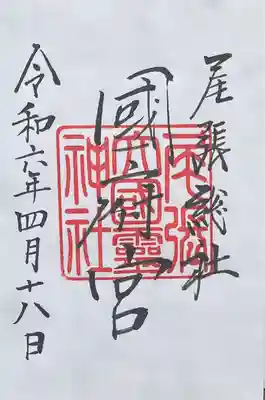 尾張総社
國府宮
尾張
大國靈
神社
令和六年四月十八日